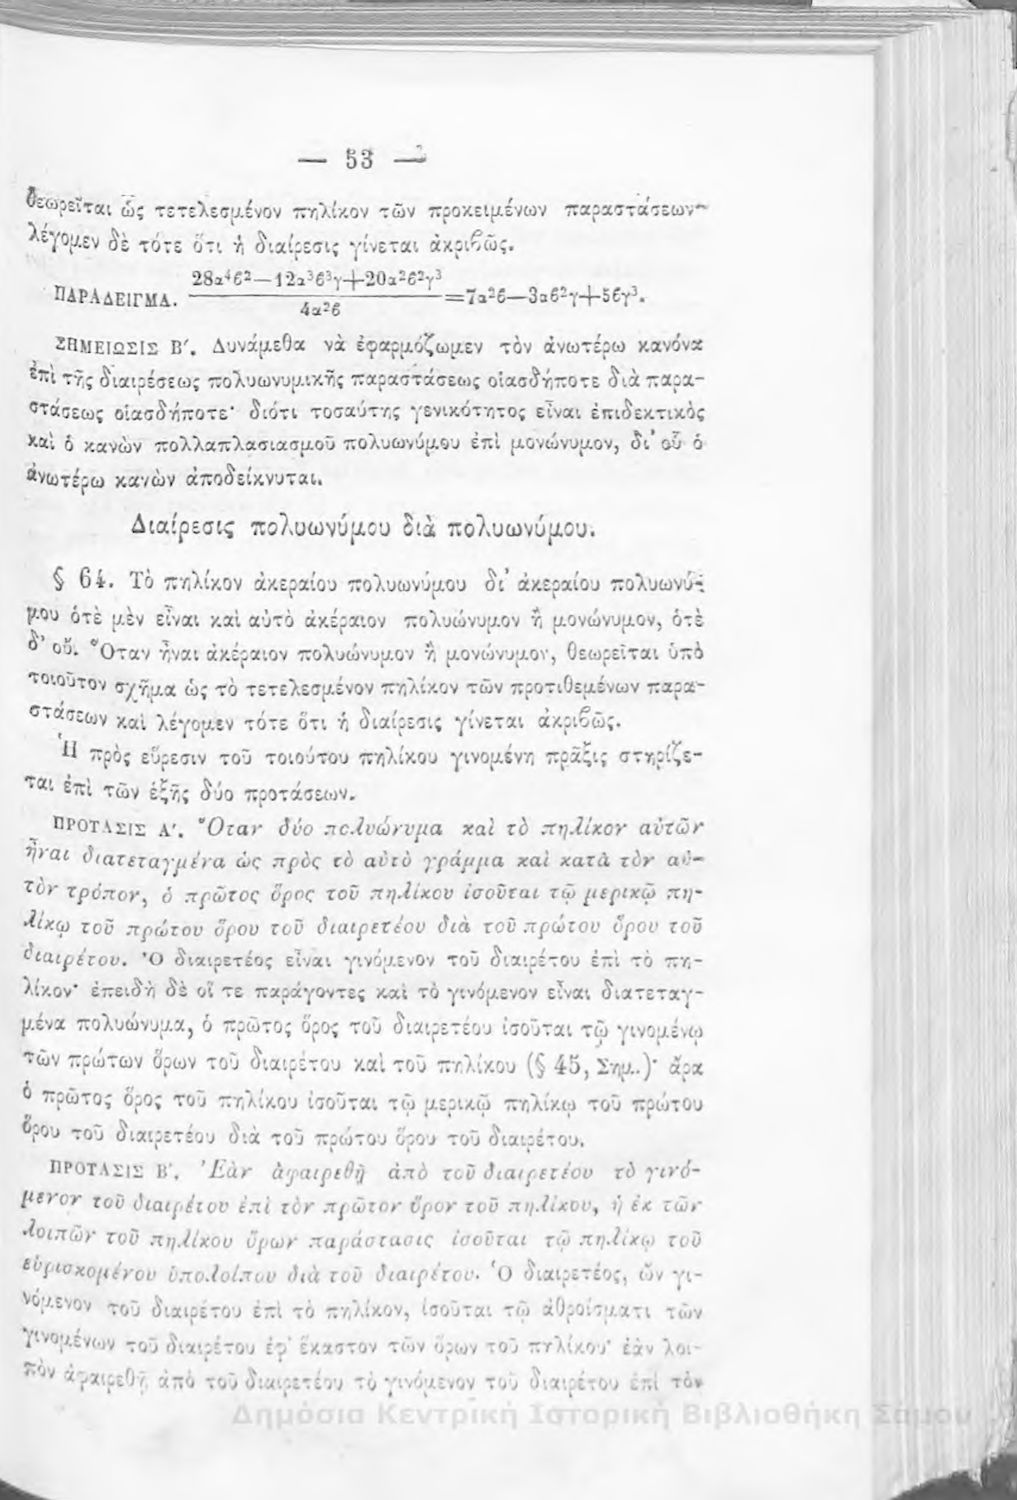 — 53 —
θεωρεῖται ὡς τετελεσμένον πηλίκον τῶν προκειμένων παραστάσεων·
λέγομεν δὲ τότε ὅτι ἡ διαίρεσις γίνεται ἀκριβῶς.
ΠΑΡΑΔΕΙΓΜΑ. 28α⁴β²—12α³β³γ+20α²β²γ³ / 4α²β =7α²β—3αβ²γ+5βγ³.
ΣΗΜΕΙΩΣΙΣ Β΄. Δυνάμεθα νὰ ἐφαρμόζωμεν τὸν ἀνωτέρω κανόνα
ἐπὶ τῆς διαιρέσεως πολυωνυμικῆς παραστάσεως οἱασδήποτε διὰ παρα-
στάσεως οἱασδήποτε· διότι τοσαύτης γενικότητος εἶναι ἐπιδεκτικὸς
καὶ ὁ κανὼν πολλαπλασιασμοῦ πολυωνύμου ἐπὶ μονώνυμον, δι᾽ οὗ ὁ
ἀνωτέρω κανὼν ἀποδείκνυται.
Διαίρεσις πολυωνύμου διὰ πολυωνύμου.
§ 64. Τὸ πηλίκον ἀκεραίου πολυωνύμου δι᾽ ἀκεραίου πολυωνύ-
μου ὁτὲ μὲν εἶναι καὶ αὐτὸ ἀκέραιον πολυώνυμον ἢ μονώνυμον, ὁτὲ
δ᾽ οὔ. Ὅταν ἦναι ἀκέραιον πολυώνυμον ἢ μονώνυμον, θεωρεῖται ὑπὸ
τοιοῦτον σχῆμα ὡς τὸ τετελεσμένον πηλίκον τῶν προτιθεμένων παρα-
στάσεων καὶ λέγομεν τότε ὅτι ἡ διαίρεσις γίνεται ἀκριβῶς.
Ἡ πρὸς εὕρεσιν τοῦ τοιούτου πηλίκου γινομένη πρᾶξις στηρίζε-
ται ἐπὶ τῶν ἑξῆς δύο προτάσεων.
ΠΡΟΤΑΣΙΣ Α΄. Ὅταν δύο πολυώνυμα καὶ τὸ πηλίκον αὐτῶν
ἦναι διατεταγμένα ὡς πρὸς τὸ αὐτὸ γράμμα καὶ κατὰ τὸν αὐ-
τὸν τρόπον, ὁ πρῶτος ὅρος τοῦ πηλίκου ἰσοῦται τῷ μερικῷ πη-
λίκῳ τοῦ πρώτου ὅρου τοῦ διαιρετέου διὰ τοῦ πρώτου ὅρου τοῦ
διαιρέτου. Ὁ διαιρετέος εἶναι γινόμενον τοῦ διαιρέτου ἐπὶ τὸ πη-
λίκον· ἐπειδὴ δὲ οἵ τε παράγοντες καὶ τὸ γινόμενον εἶναι διατεταγ-
μένα πολυώνυμα, ὁ πρῶτος ὅρος τοῦ διαιρετέου ἰσοῦται τῷ γινομένῳ
τῶν πρώτων ὅρων τοῦ διαιρέτου καὶ τοῦ πηλίκου (§ 45, Σημ.)· ἄρα
ὁ πρῶτος ὅρος τοῦ πηλίκου ἰσοῦται τῷ μερικῷ πηλίκῳ τοῦ πρώτου
ὅρου τοῦ διαιρετέου διὰ τοῦ πρώτου ὅρου τοῦ διαιρέτου.
ΠΡΟΤΑΣΙΣ Β΄. Ἐὰν ἀφαιρεθῇ ἀπὸ τοῦ διαιρετέου τὸ γινό-
μενον τοῦ διαιρέτου ἐπὶ τὸν πρῶτον ὅρον τοῦ πηλίκου, ἡ ἐκ τῶν
λοιπῶν τοῦ πηλίκου ὅρων παράστασις ἰσοῦται τῷ πηλίκῳ τοῦ
εὑρισκομένου ὑπολοίπου διὰ τοῦ διαιρέτου. Ὁ διαιρετέος, ὢν γι-
νόμενον τοῦ διαιρέτου ἐπὶ τὸ πηλίκον, ἰσοῦται τῷ ἀθροίσματι τῶν
γινομένων τοῦ διαιρέτου ἐφ᾽ ἕκαστον τῶν ὅρων τοῦ πηλίκου· ἐὰν λοι-
πὸν ἀφαιρεθῇ ἀπὸ τοῦ διαιρετέου τὸ γινόμενον τοῦ διαιρέτου ἐπὶ τὸν
Δημόσια Κεντρική Ιστορική Βιβλιοθήκη Σάμου